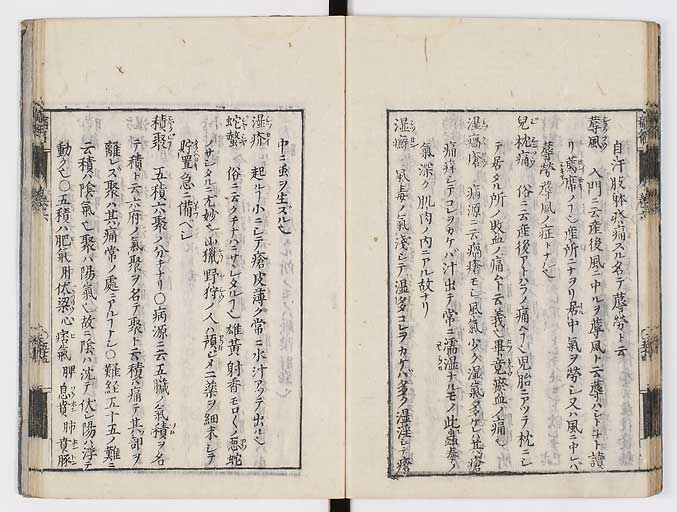 自汗肢躰疼痛スル名テ蓐労ト云
蓐風 入門ニ云産後風ニ中ルヲ蓐風ト云蓐ハシトネト讀
リ薦席ノ
産所ニナヲリ居中氣ヲ勞シ又ハ風ニ中レハ
蓐勞蓐風ノ症トナル
兒枕痛 俗ニ云産後アトハラノ痛
兒胎ニアツテ枕ニシ
テ居タル所ノ敗血ノ痛ト云義
畢竟瘀血ノ痛
湿瘡 病源ニ云
風氣少ク湿氣多
其瘡
痛痒シテコレヲカケバ汁出テ常ニ濡湿ナルモノ此蟲
氣深ク肌肉ノ内ニアル故ナリ
湿癬 風毒ノ氣浅シテ湿多コレヲカケバ多ク湿淫シテ瘡
中ニ虫ヲ生ズル
湿疥 起ル
小ニシテ瘡皮薄ク常ニ水汁アツテ出ル
蛇螫 俗ニ云クチナハニサ
雄黄射香モロ
悪蛇
ノサシタルニ尤妙
山獵野狩ノ人ハ預
メ二薬ヲ細末シテ
貯置急ニ備ベシ
積聚 五積六聚ノ分チナリ〇病源ニ云五臓ノ氣積ヲ名
テ積ト云六府ノ氣聚ヲ名テ聚ト云積ハ痛テ其部ヲ
離レズ聚ハ其痛常ノ處ニアル
〇難経五十五ノ難ニ
云積ハ陰氣
聚ハ陽氣
故ニ陰ハ沈テ伏シ陽ハ浮テ
動ク
〇五積ハ肥氣肝伏梁心痞氣脾息賁肺賁豚